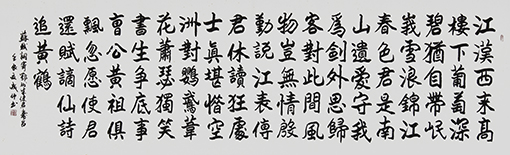 江漢西來高
樓下葡萄深
碧猶自帶岷
峩雪浪錦江
春色君是南
山遺愛守我
爲劍外思歸
客對此間風
物豈無情殷
勤説江表傳
君休讀狂處
士真堪惜空
洲對鸚鵡葦
花蕭瑟獨笑
書生爭底事
曹公黃祖俱
飄忽愿使君
還賦謫仙詩
追黃鶴
蘇軾詞寄鄂州朱使君壽昌